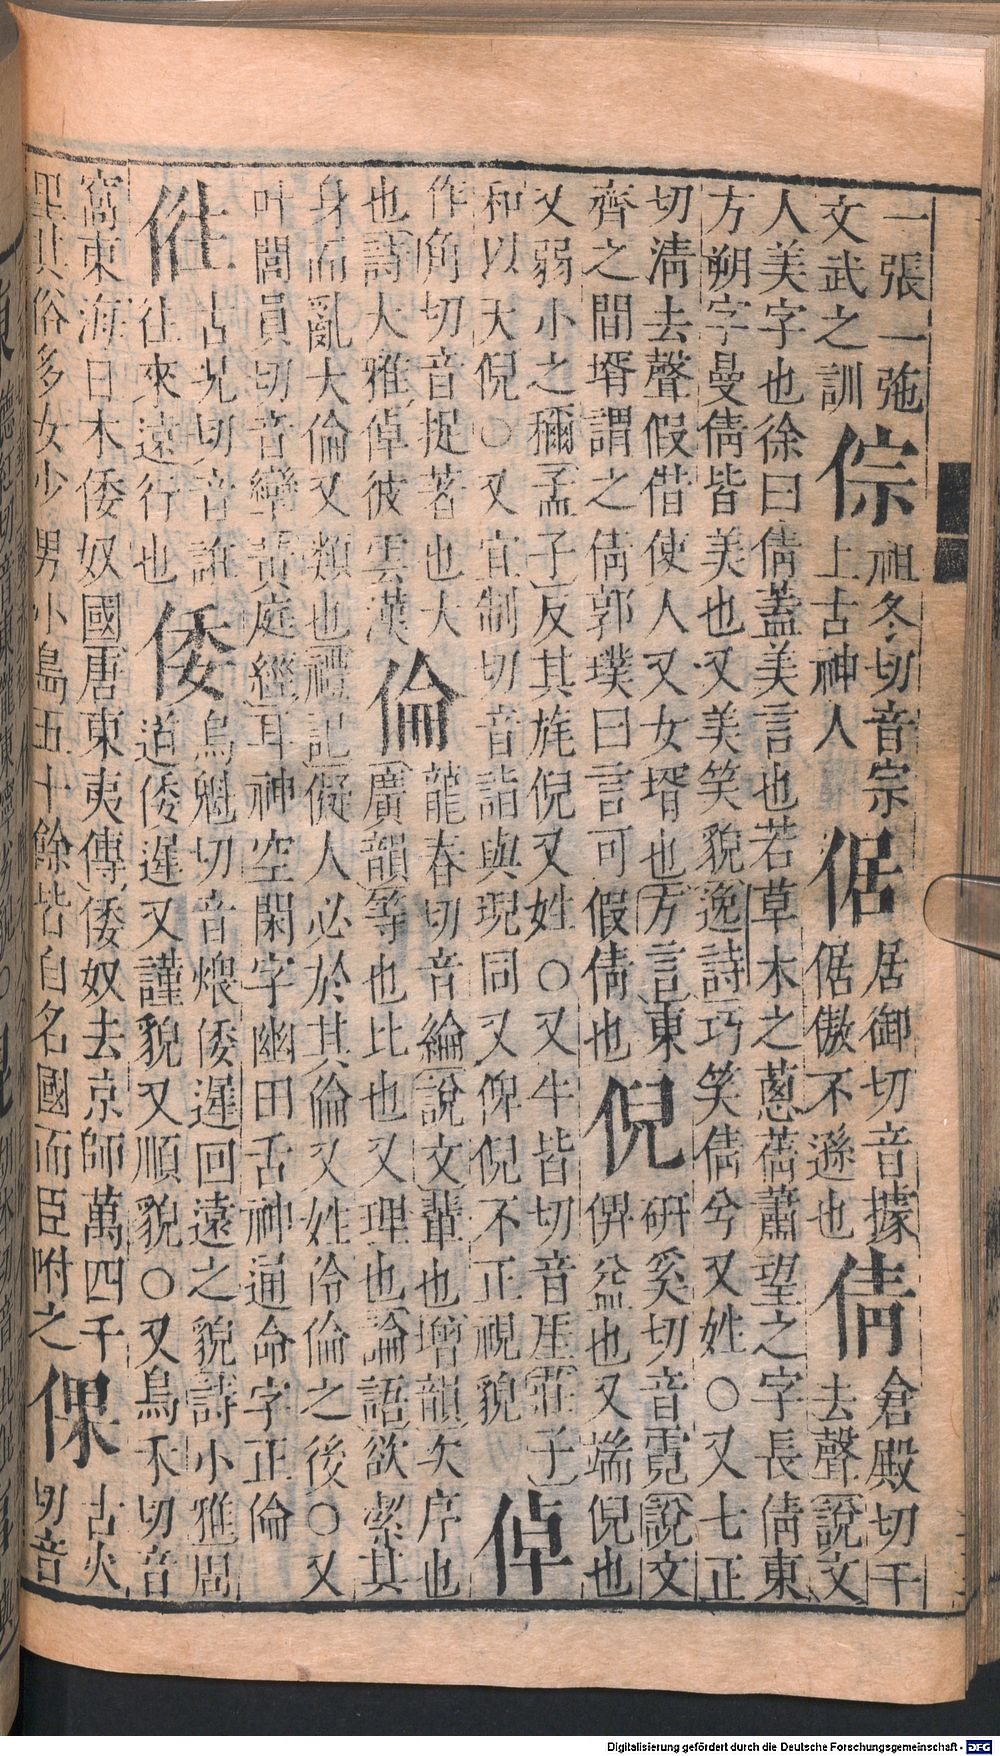 一張一弛
文武之訓
倧
祖冬切音宗
上古神人
倨
居御切音據
倨傲不遜也
倩
倉殿切千
去聲說文
人美字也徐曰倩蓋美言也若草木之蔥蒨蕭望之字長倩東
方朔字曼倩皆美也又美笑貌逸詩巧笑倩兮又姓○又七正
切清去聲假借使人又女壻也方言東
齊之間壻謂之倩郭璞曰言可假倩也
倪
研奚切音霓說文
俾益也又端倪也
又弱小之稱孟子反其旄倪又姓○又牛皆切音厓莊子
和以天倪○又宜制切音詣與睨同又俾倪不正視貌
倬
作角切音捉著也大
也詩大雅倬彼雲漢
倫
龍春切音綸說文輩也增韻次序也
廣韻等也比也又理也論語欲潔其
身而亂大倫又類也禮記儗人必於其倫又姓泠倫之後○又
叶閭員切音孿黃庭經耳神空閑字幽田舌神通命字正倫
古況切音誑
往來遠行也
倭
烏魁切音煨倭遲回遠之貌詩小雅周
道倭遲又謹貌又順貌○又烏禾切音
窩東海日本倭奴國唐東夷傳倭奴去京師萬四千
里其俗多女少男小島五十餘皆自名國而臣附之
倮
古火
切音
Digitalisierung gefördert durch die Deutsche Forschungsgemeinschaft - DFG